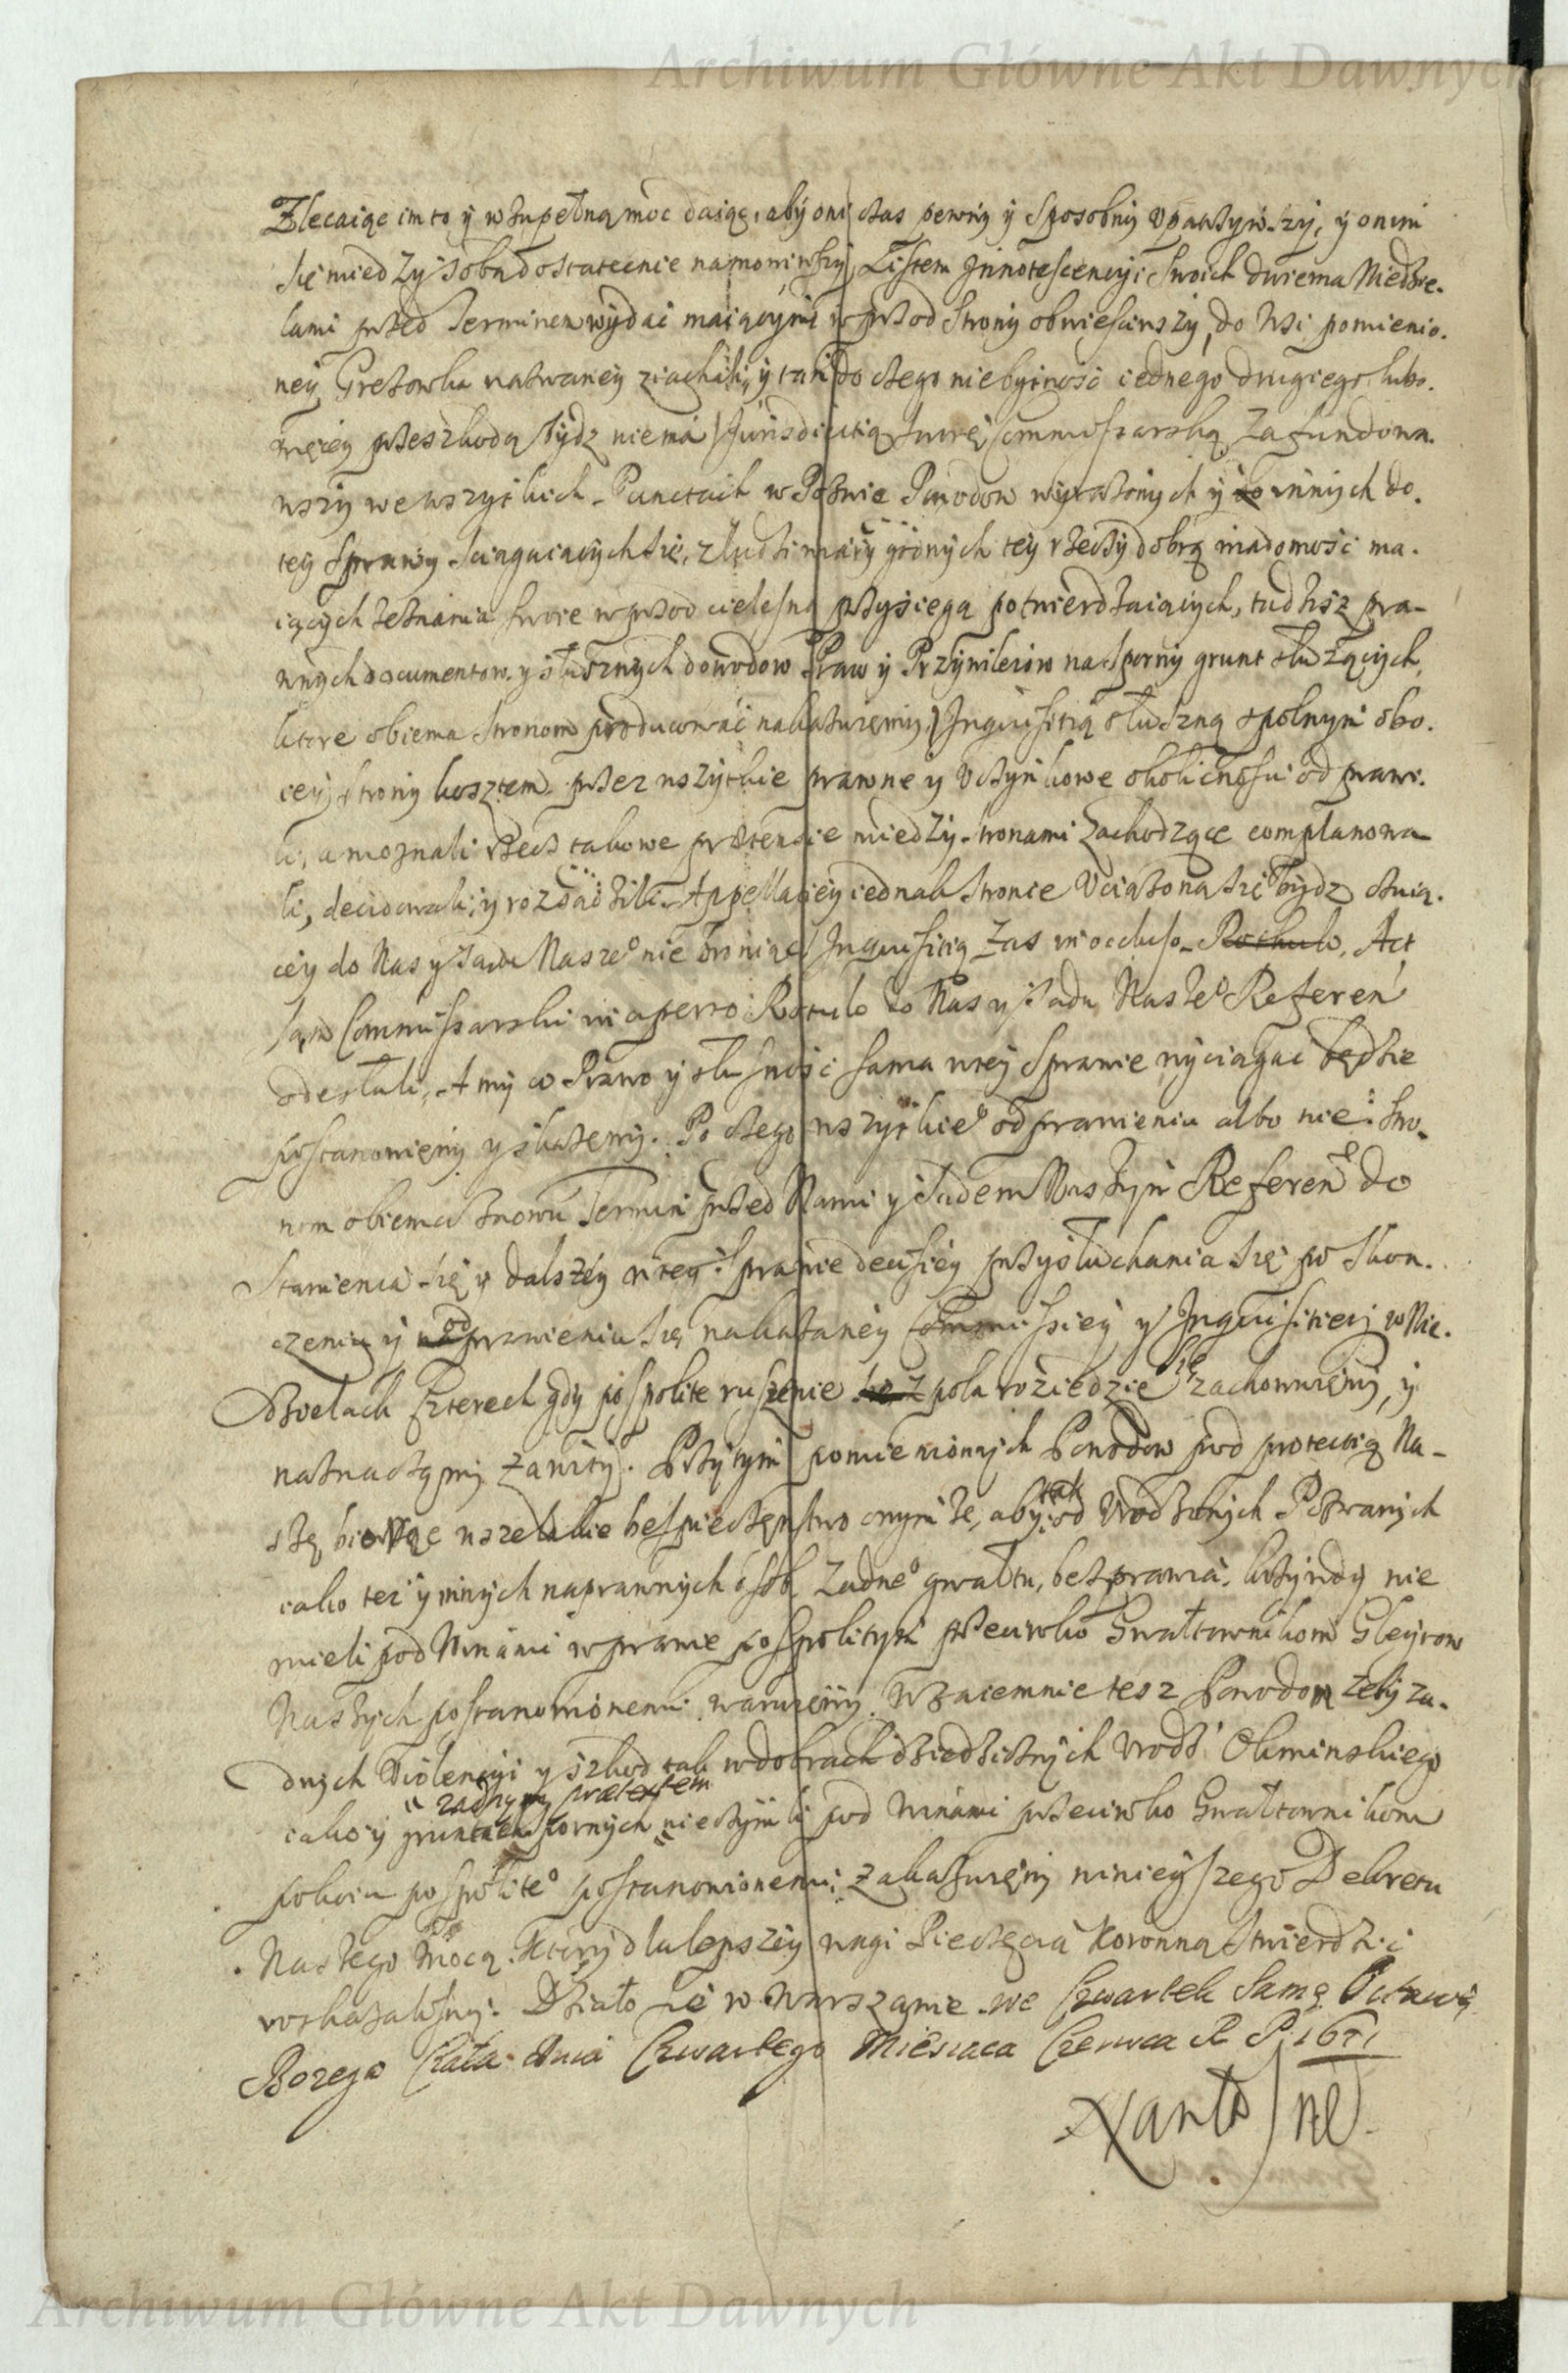 Archiwum Główne Akt Dawnych
Zlecaiąc im to y wzupełną moc daiąc, aby oni czas pewny y sposobny upatrzywszy, y onym
się miedzy sobą dostatecznie namowiwszy, Listem Innotescencyi swoich dwiema Niedzie-
lami przed Terminem wydać maiącymi wprzod Strony obwiesciwszy, do Wsi pomienio-
ney Gretowka nazwaney ziachali, y tam do czego niebytność iednego drugiego lubo.
więcey przeszkodą bydz niema Jurisdictią swoię Commissarską zafundowa-
wszy we wszytkich Punctach w Pozwie Powodow wyrażonych y innych do
tey sprawy sciągaiących się, z ludzi wiary godnych tey rzeczy dobrą wiadomość ma-
iących zeznania swoie wprzod cielesną przysięgą potwierdzaiących, tudziesz pra-
wnych documentow y słusznych dowodow Praw y Przywileiow na sporny grunt służących,
ktore obiema stronom producować nakazuięmy, Inquisitią słuszną spolnym obo-
iey strony kosztem przez wszytkie prawne y uczynkowe okolicznosci odprawi-
li, a moznali rzecz takowe prætensie miedzy stronami zachodzące complanowa-
li, decidowali, y rozsądzili. Appellaciey iednak stronie uciążoną się bydz czuią-
cey do Nas y sądu Nasze° nie broniąc Inquisitią zas in occluso Rotulo, Act
sam Commissarski in aperto Rotulo do Nas y sądu Nasze° Referen
odesłali, A my co Prawo y słuszność sama w tey sprawie wyciągać będzie
postanowięmy y skażęmy. Po czego wszytkie° odprawieniu albo nie: Stro-
nom obiema znowu Termin przed Nami y Sądem Naszym Referen do
Stawienia się y dalszey w tey sprawie decisiey przysłuchania się po skon-
czeniu y odprawieniu się nakazaney Commissiey y Inquisitiey w Nie-
dzielach Czterech gdy pospolite ruszenie z pola roziedzie się zachowuięmy, y
naznaczamy zawity. Przytym pomienionych Powodow pod protectią Na-
szę biorąc wszelakie bespieczęnstwo onym że, aby tak od Urodzonych Pozwanych
iako tez y innych naprawnych osob żadne° gwałtu, bezprawia, krzywdy nie
mieli pod Winami w prawie pospolitym przeciwko Gwałtownikom Gleytow
Naszych postanowionemi waruięmy. Wzaiemnie tesz Powodom żeby ża-
dnych Violencyi y szkod tak w dobrach dziedzicznych Urodz Okminskiego
iako y gruntach spornych żadnym prætextem nieczynili pod winami przeciwko Gwałtownikom
pokoiu pospolite° postanowionemi zakazuięmy ninieyszego Dekretu
Naszego mocą. Ktory dla lepszey wagi Pieczęcią Koronną stwierdzić
roskazalismy. Działo się w Warszawie we Czwartek Samą Octawę
Bozego Ciała dnia Czwartego Miesiaca Czerwca R P 1671
Archiwum Główne Akt Dawnych